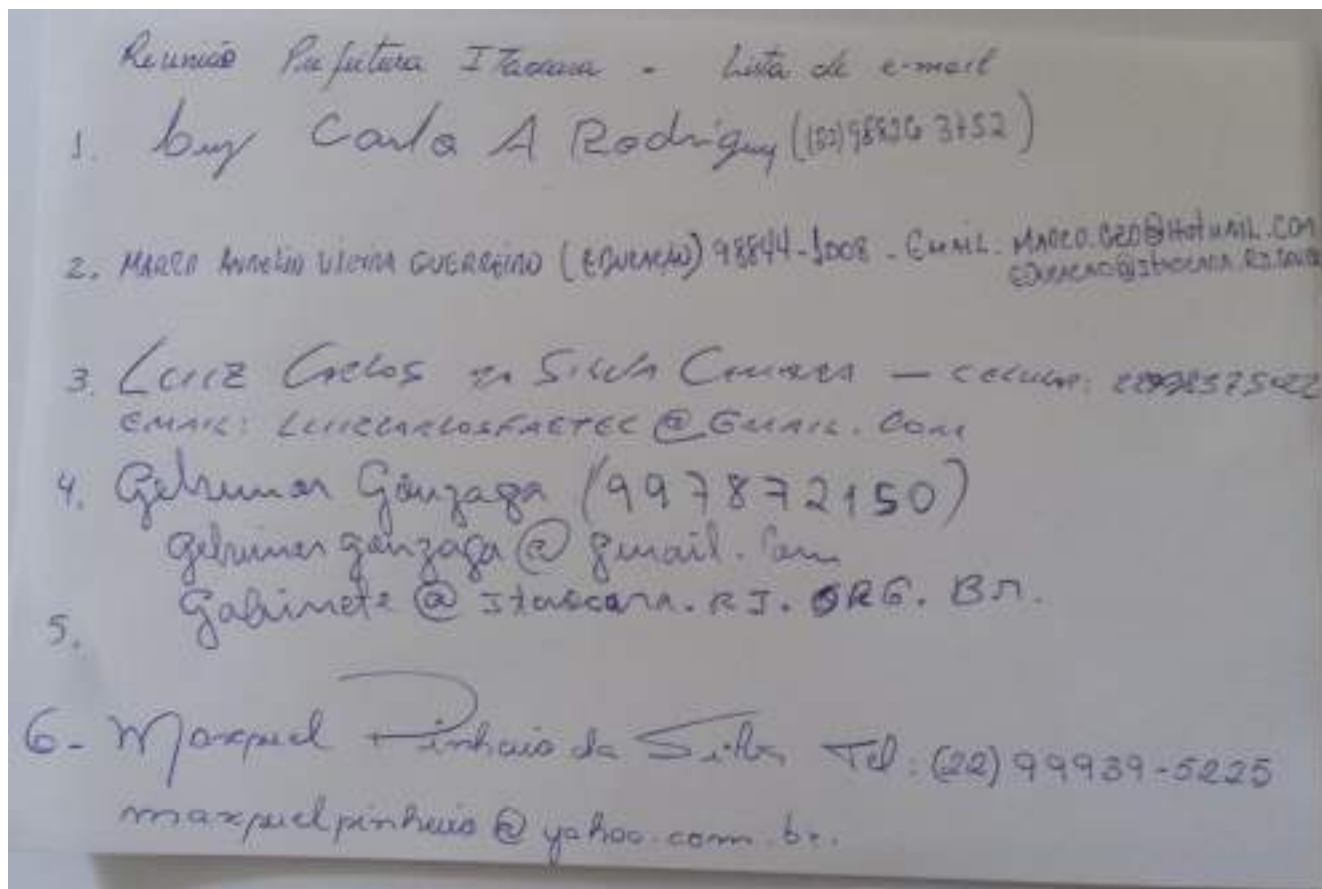 Reunião Prefeitura Itaocara - Lista de e-mail
1. Luiz Carlos A Rodrigues
2. MARCO AURELIO VIEIRA GUERREIRO (EDUCAÇÃO) 98844-1008 - EMAIL: MARCO.GEO@HOTMAIL.COM
3. LUIZ CARLOS DA SILVA - CELULAR:
EMAIL: LUIZCARLOSFAETEC@GMAIL.COM
4. Gelsimar Gonzaga (997872150)
gelsimargonzaga@gmail.com
gabinete@Itaocara.RJ.ORG.BR.
5.
6- Maxpuel Pinheiro da Silva Tel: (22) 99939-5225
maxpuelpinheiro@yahoo.com.br.